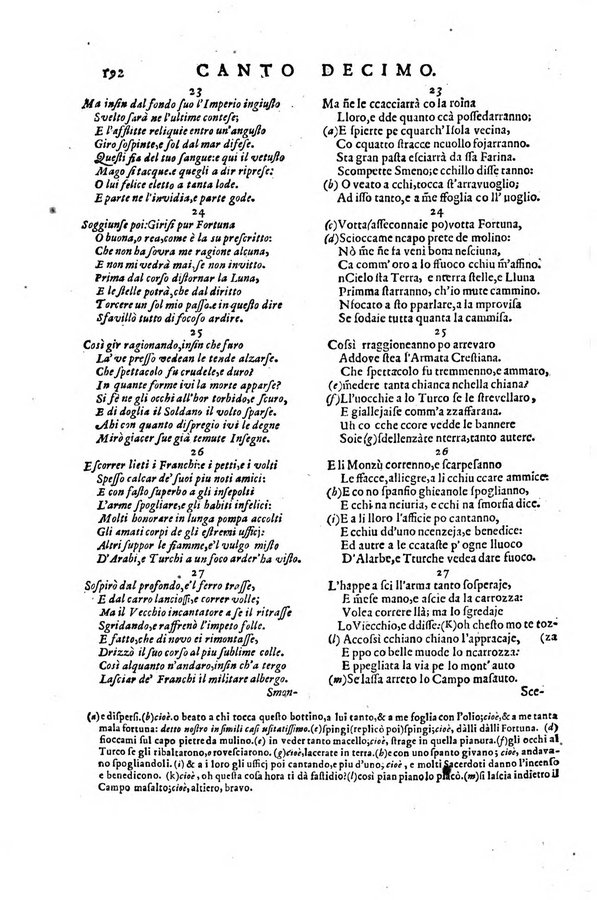 192 CANTO DECIMO.
23
Ma inſin dal fondo ſuo l'Imperio ingiuſto
Svelto ſarà ne l'ultime conteſe;
E l'afflitte reliquie entro un'anguſto
Giro ſoſpinte,e ſol dal mar difeſe.
Queſti fia del tuo ſangue:e qui il vetuſto
Mago ſi tacque.e quegli a dir ripreſe:
O lui felice eletto a tanta lode.
E parte ne l'invidia,e parte gode.
24
Soggiunſe poi:Giriſi pur Fortuna
O buona,o rea,come è la su preſcritto:
Che non ha ſovra me ragione alcuna,
E non mi vedrà mai,ſe non invitto.
Prima dal corſo diſtornar la Luna,
E le ſtelle potrà,che dal diritto
Torcere un ſol mio paſſo.e in queſto dire
Sfavillò tutto di focoſo ardire.
25
Così gir ragionando,inſin che furo
La've preſſo vedean le tende alzarſe.
Che ſpettacolo fu crudele,e duro?
In quante forme ivi la morte apparſe?
Si fè ne gli occhi all'hor torbido,e ſcuro,
E di doglia il Soldano il volto ſparſe.
Ahi con quanto diſpregio ivi le degne
Mirò giacer ſue già temute Inſegne.
26
E ſcorrer lieti i Franchi:e i petti,e i volti
Speſſo calcar de'ſuoi piu noti amici:
E con faſto ſuperbo a gli inſepolti
L'arme ſpogliare,e gli habiti infelici:
Molti honorare in lunga pompa accolti
Gli amati corpi de gli eſtremi ufficj:
Altri ſuppor le fiamme,e'l vulgo miſto
D'Arabi,e Turchi a un foco arder'ha viſto.
27
Soſpirò dal profondo,e'l ferro traſſe,
E dal carro lancioſſi,e correr volle;
Ma il Vecchio incantatore a ſe il ritraſſe
Sgridando,e raffrenò l'impeto folle.
E fatto,che di novo ei rimontaſſe,
Drizzò il ſuo corſo al piu ſublime colle.
Così alquanto n'andaro,inſin ch'a tergo
Laſciar de' Franchi il militare albergo.
Sman-
23
Ma ñe le ccacciarrà co la roina
Lloro,e dde quanto ccà poſſedarranno;
(a)E ſpierte pe cquarch'Iſola vecina,
Co cquatto ſtracce ncuollo ſojarranno.
Sta gran paſta eſciarrà da ſſa Farina.
Scompette Smeno;e cchillo diſſe tanno:
(b) O veato a cchi,tocca ſt'arravuoglio;
Ad iſſo tanto,e a m̃e ffoglia co ll' uoglio.
24
(c)Votta(aſſeconnaie po)votta Fortuna,
(d)Scioccame ncapo prete de molino:
Nò m̃e fa ta veni bona neſciuna,
Ca comm'oro a lo ffuoco cchiù m̃'affino.
nCielo ſta Terra, e nterra Stelle,e Lluna
Primma ſtarranno, ch'io mute cammino.
Nfocato a ſto pparlare,a la mproviſa
Se ſodaie tutta quanta la cammiſa.
25
Coſsì rraggioneanno po arrevaro
Addove ſtea l'Armata Creſtiana.
Che ſpettacolo fu tremmenno,e ammaro,
(e)m̃edere tanta chianca nchella chiana?
(f)L'luocchie a lo Turco ſe ſtrevellaro,
E giallejaiſe comm'a zzaffarana.
Uh co cche ccore vedde le bannere
Soie(g)sdellenzàte nterra,tanto autere.
26
E li Monzù correnno,e ſcarpeſanno
Le ffacce,allegre,a li cchiu ccare ammice:
(h)E co no ſpanfio ghieanole ſpoglianno,
E cchi na neneiuria, e cchi na ſmorfia dice.
(i)E a li lloro l'afficie po cantanno,
E cchiu dd'uno ncenzeja,e benedice:
Ed autre a le ccataſte p' ogne lluoco
D'Alarbe,e Tturche vedea dare ſuoco.
27
L'happe a ſci ll'arma tanto ſoſperaje,
E m̃eſe mano,e ſaie da la carrozza:
Volea correre llà; ma lo sgredaje
Lo Viecchio,e ddiſſe:(K)oh cheſt'hora te toz-
(l) Accoſsi cchiano cchiano l'appracaje, (za
E po ccoppo bello lo ncarrozza:
E ppegliata la via pe lo mont' auto
(m)Se laſſa arreto lo Campo maſauto.
Sce-
(a)e diſperſi.(b)cioè.o beato a chi tocca queſto bottino,a lui tanto,& a me foglia con l'olio;cioè,& a me tanta
mala fortuna: detto noſtro in ſimili caſi uſitatiſſimo.(c)ſpingi(replicò poi)ſpingi;cioè, dàlli dàlli Fortuna. (d)
fioccami ſul capo pietre da mulino.(e) in veder tanto macello;cioè, ſtrage in quella pianura.(f)gli occhi al
Turco ſe gli ribaltarono,o roveſciarono. (g)cioè,lacerate in terra.(b)e con uno ſpanto givano; cioè, andava-
no ſpogliandoli.(i) & a i loro gli ufficj poi cantando,e piu d'uno; cioè, e molti Sacerdoti danno l'incenſo
e benedicono. (k)cioè,oh queſta coſa hora ti dà faſtidio?(l)così pian piano lo placò.(m)ſi laſcia indietro il
Campo maſalto;cioè, altiero, bravo.